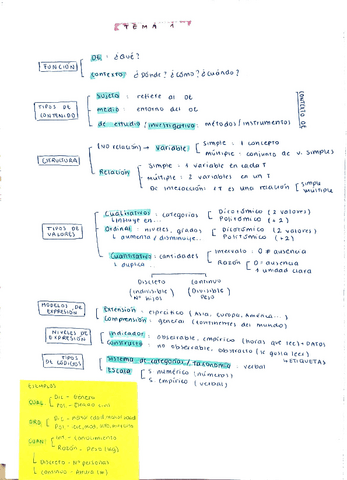 TEMA 1
FUNCIÓN
OE: ¿Qué?
contexto: ¿Dónde? ¿cómo? ¿cuándo?
TIPOS DE CONTENIDO
sujeto: refiere al OE
medio: entorno del OE
de estudio / investigativo: métodos/instrumentos
CONTEXTO OE
ESTRUCTURA
(no relación) → variable
simple: 1 concepto
múltiple: conjunto de v. simples
Relación
simple: 1 variable en cada T
múltiple: 2 variables en un T
De interacción: 1T es una relación
simple
múltiple
TIPOS DE VALORES
Cualitativos: categorías
Incluye en...
Dicotómico (2 valores)
Politómico (+2)
Ordinal: niveles, grados
↓ aumenta / disminuye...
Dicotómico (2 valores)
Politómico (+2)
Cuantitativo: cantidades
↓ duplica...
Intervalo: 0 ≠ ausencia
Razón
0 = ausencia
+ unidad clara
Discreto
(indivisible)
Nº hijos
continuo
(Divisible)
peso
MODELOS DE EXPRESIÓN
Extensión: específico (Asia, Europa, América...)
Comprensión: general (continentes del mundo)
NIVELES DE EXPRESIÓN
Indicador: observable, empírico (horas que lee) → DATOS
Constructo: no observable, abstracto (le gusta leer)
TIPOS DE CÓDIGOS
Sistema de categorías / taxonomía: verbal
→ ETIQUETAS
Escala
s. numérico (números)
s. empírico (verbal)
EJEMPLOS
CUAL
Dic - Género
Pol - Estado civil
ORD
CUAN
Int. - conocimiento
Razón - peso (kg)
Discreto - Nº personas
continuo - Altura (m)